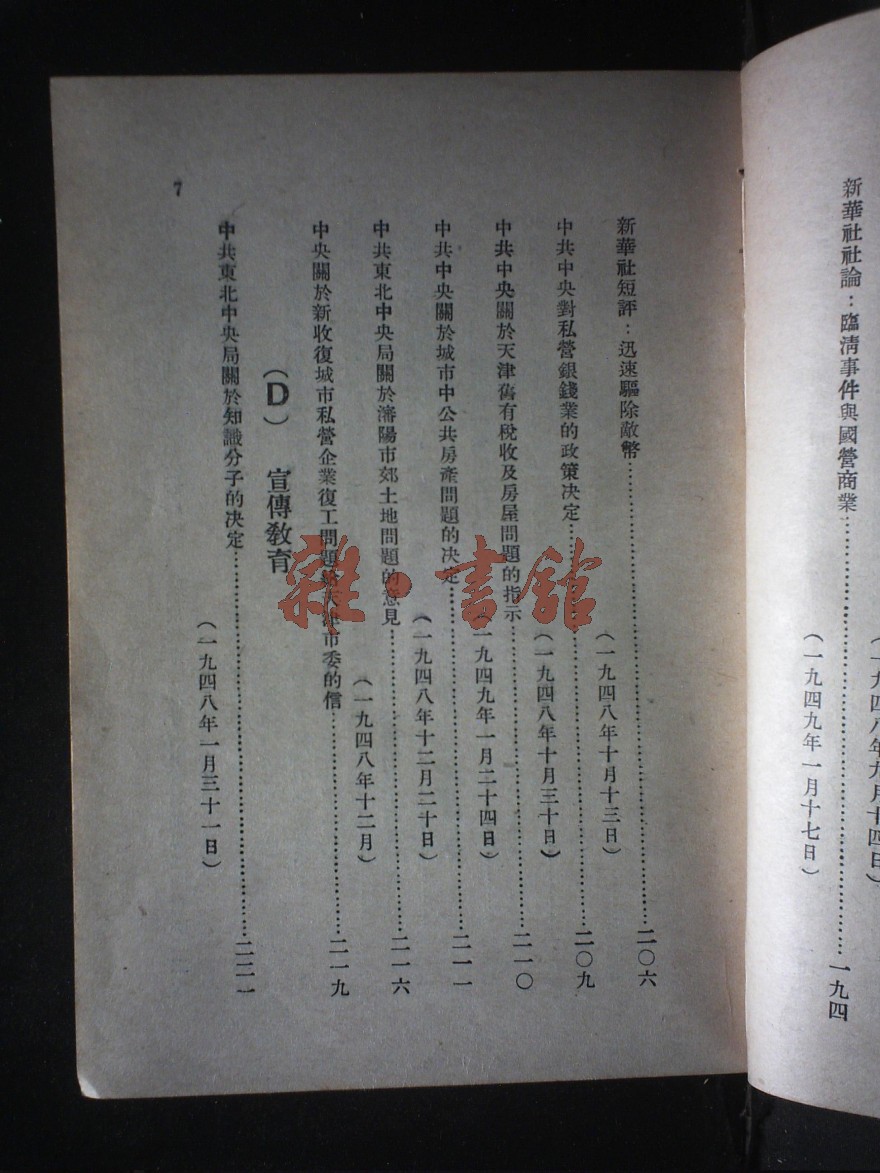 （一九四八年九月十四日）
新華社社論：臨淸事件與國營商業……一九四
（一九四九年一月十七日）
新華社短評：迅速驅除敵幣……二〇六
（一九四八年十月十三日）
中共中央對私營銀錢業的政策决定……二〇九
（一九四八年十月三十日）
中共中央關於天津舊有稅收及房屋問題的指示……二一〇
（一九四九年一月二十四日）
中共中央關於城市中公共房產問題的决定……二一一
（一九四八年十二月二十日）
中共東北中央局關於瀋陽市郊土地問題的意見……二一六
（一九四八年十二月）
中央關於新收復城市私營企業復工問題 市委的信……二一九
（D） 宣傳敎育
中共東北中央局關於知識分子的决定……二二一
（一九四八年一月三十一日）
7
雜·書館